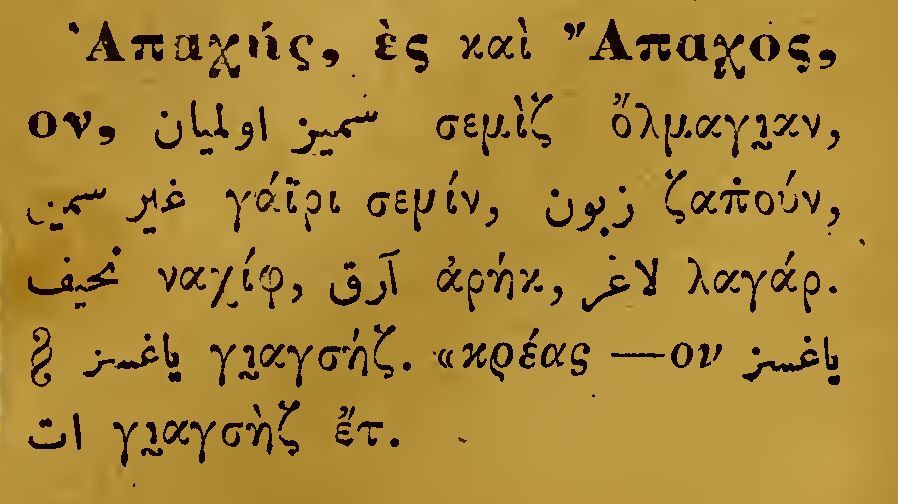 Ἀπαχής, ὲς καὶ Ἄπαχος,
ον, سمیز اولمیان σεμὶζ ὄλμαγι̰αν,
غیر سمین γάϊρι σεμίν, زبون ζαπ̇ούν,
نحیف ναχίφ, آرق ἀρήκ, لاغر λαγάρ.
§ یاغسز γι̰αγσήζ. «κρέας —ον یاغسز
ات γι̰αγσὴζ ἔτ.